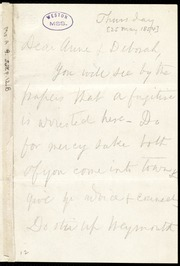 WESTON
MSS.
Thursday
[25 May 1854]
Dear Anne & Deborah,
You will see by the
papers that a fugitive
is arrested here - Do
for mercy sake both
of you come into town &
give yr advice & counsel
Do stir up Weymouth